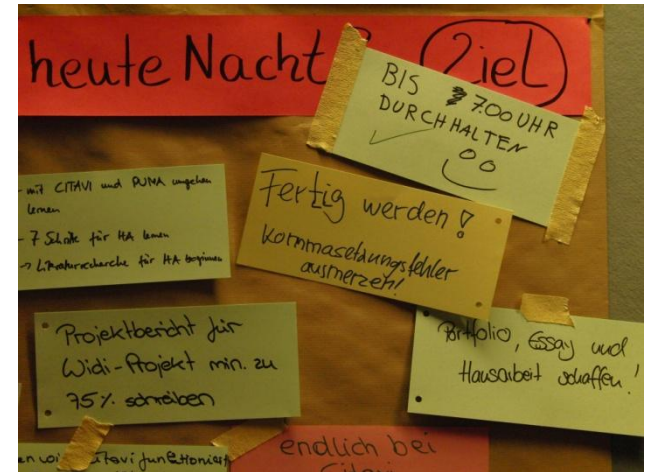 heute Nacht? Ziel
BIS 7.00 UHR
DURCHHALTEN
- mit CITAVI und PUMA umgehen
lernen
- 7 Schritte für HA lernen
-> Literaturrecherche für HA beginnen
Fertig werden!
Kommasetzungsfehler
ausmerzen!
Projektbericht für
Widi-Projekt min. zu
75% schreiben
Portfolio, Essay und
Hausarbeit schaffen!
Citavi funktioniert
endlich bei
Citavi